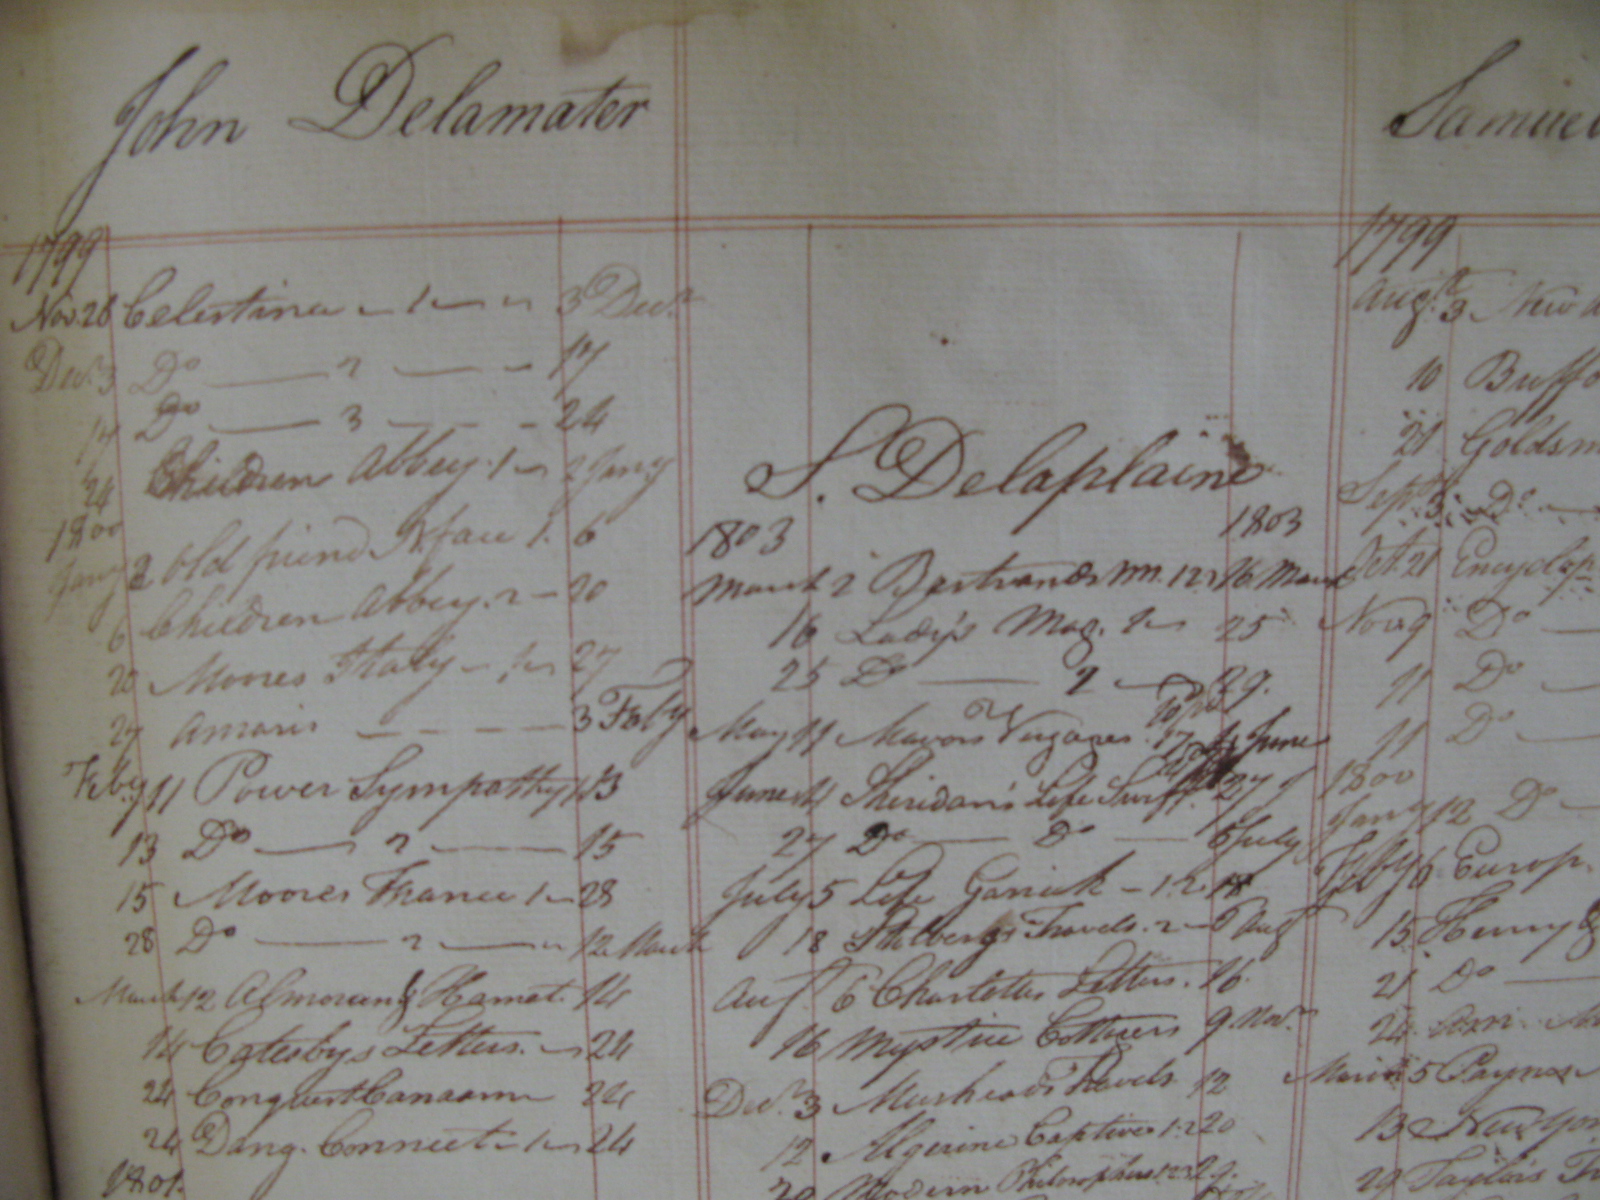 John Delamater
1799
Nov. 26 Celestina - 1 - 3d Decr
Decr 3 Do - 2 - 17
17 Do - 3 - 24
24 Children Abbey 1 - 2 Jany
1800
Jany 2 Old friend Nface 1. 6
6 Children Abbey. 2 - 20
20 Moores Italy - 1 - 27
27 Amaris - 3 Feby
Feby 11 Power Sympathy 1 13
13 Do - 2 - 15
15 Moores France 1 - 28
28 Do - 2 - 12 March
March 12 Almoran & Hamet 14
14 Catesbys Letters. - 24
24 Conquest Canaan 24
24 Dang. Connect - 1 - 24
1801.
S. Delaplaine
1803 1803
March 2 Bertrands 1.2 16 March
16 Lady's Mag. 1 - 25
25 Do - 2 - 29.
May 11 Mavors Voyages. 17 June
June 11 Sheridan's Life Swift 27
27 Do - Do - 5 July
July 5 Life Garrick - 1.2. 18
18 Stolbergs Travels. 2 - 6 Aug
Aug 6 Charlottes Letters. 16.
16 Mystic Cottager 9 Novr
Decr 3 Muirheads Travels 12
12 Algerine Captive 1.2 20
20 Modern Philosophers 1.2 29.
Samuel
1799
Augt 3 New
10 Buffo
21 Goldsm
Sept 3 Do
Oct. 21 Encyclop
Nov 9 Do
11 Do
11 Do
1800
Jany 12 Do
Feby 6 Europ.
15 Henry &
21 Do
24
March 5 Paynes
13 New York
29 Taylors